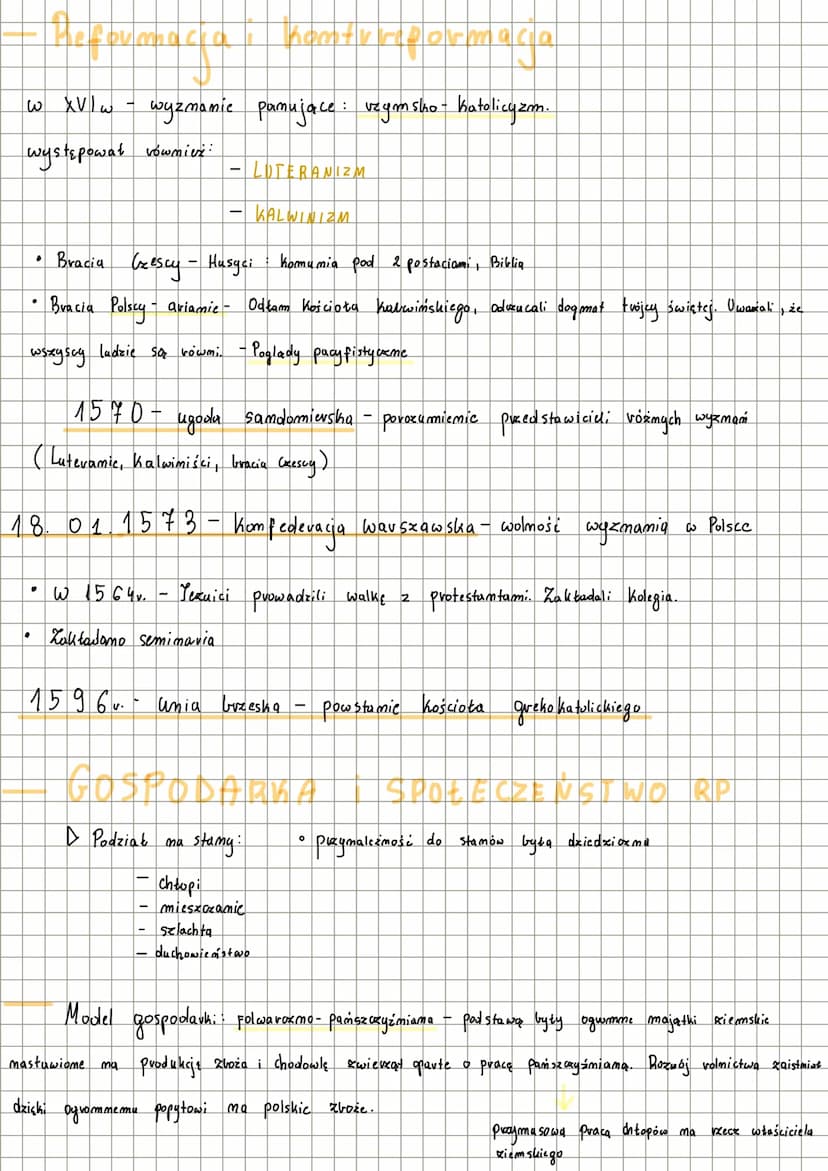 — Reformacja i kontrreformacja
w XVI w - wyznanie panujące: rzymsko-katolicyzm.
występował również:
- LUTERANIZM
- KALWINIZM
• Bracia Czescy - Husyci : komunia pod 2 postaciami, Biblia
• Bracia Polscy - arianie - Odłam Kościoła kalwińskiego, odrzucali dogmat trójcy świętej. Uważali, że
wszyscy ludzie są równi. - Poglądy pacyfistyczne
1570 - ugoda sandomierska - porozumienie przedstawicieli różnych wyznań
(Luteranie, Kalwiniści, bracia Czescy)
18.01.1573 - konfederacja warszawska - wolność wyznania w Polsce
• W 1564r. - Jezuici prowadzili walkę z protestantami. Zakładali Kolegia.
• Zakładano seminaria
1596r. - unia brzeska - powstanie kościoła grekokatolickiego
— GOSPODARKA i SPOŁECZEŃSTWO RP
▷ Podział na stany: ° przynależność do stanów była dziedziczna
- chłopi
- mieszczanie
- szlachta
- duchowieństwo
— Model gospodarki: Folwarczno-pańszczyźniana - podstawą były ogromne majątki ziemskie
nastawione na produkcję zboża i chodowlę zwierząt oparte o pracę pańszczyźnianą. Rozwój rolnictwa zaistniał
dzięki ogrommemu popytowi na polskie zboże. ↓
przymusowa praca chłopów na rzecz właściciela
ziemskiego